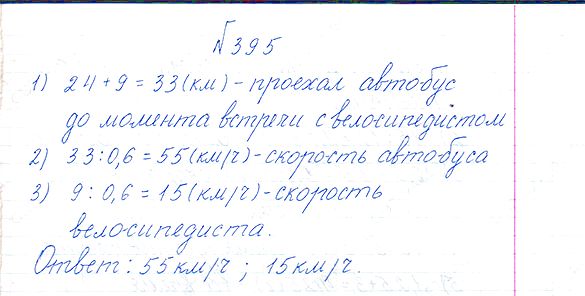 №395
1) 24+9=33(км)-проехал автобус
до момента встречи с велосипедистом
2) 33:0,6=55(км/ч)-скорость автобуса
3) 9:0,6=15(км/ч)-скорость
велосипедиста.
Ответ: 55км/ч ; 15км/ч.